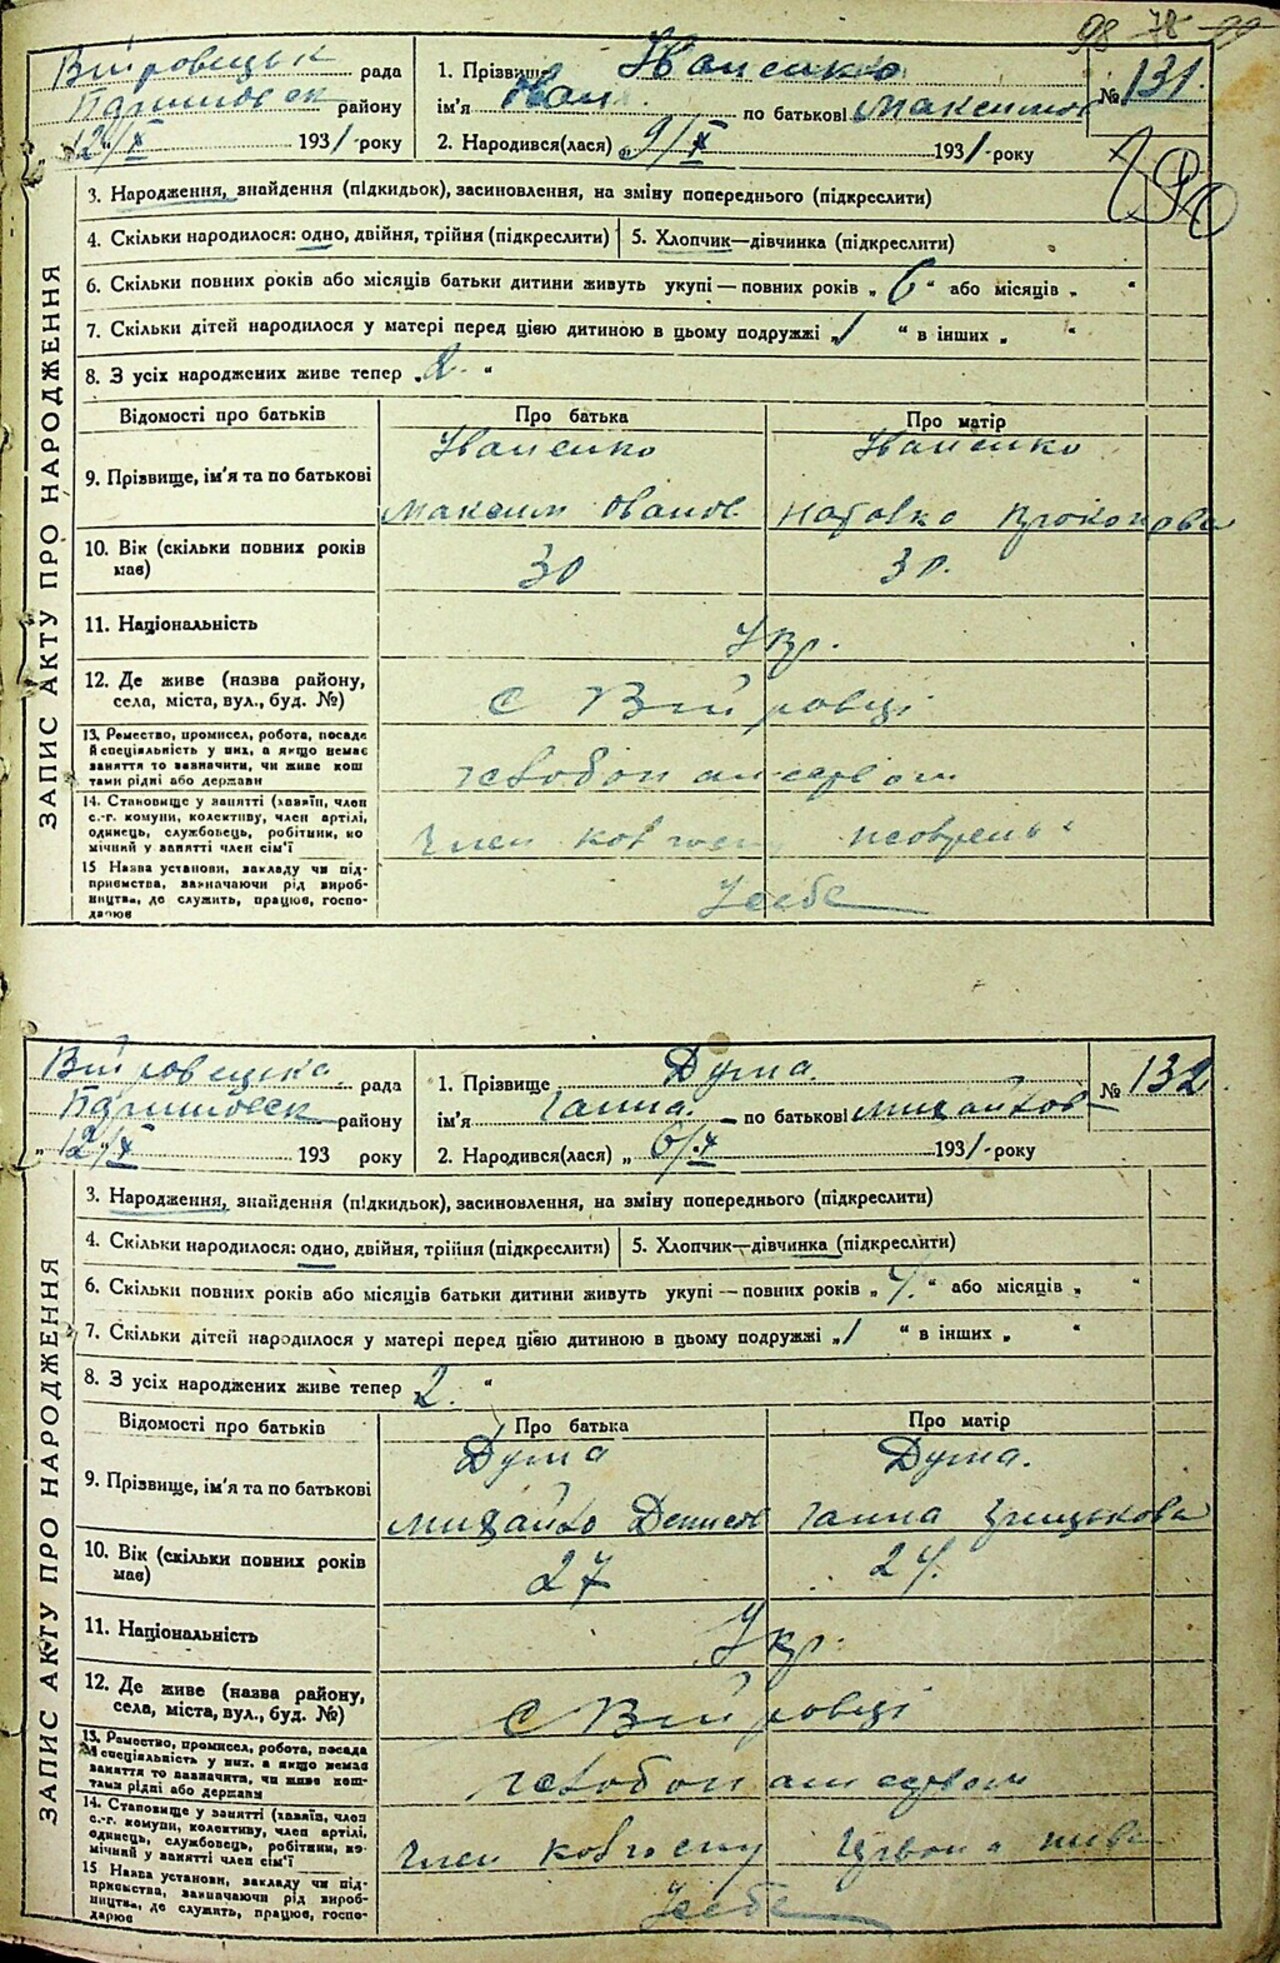 98 78
Війровецьк рада
району
12/X 1931 року
1. Прізвище Іваненко
ім'я Іван по батькові Максимов
№ 131.
2. Народився(лася) „9/X 1931 року
ЗАПИС АКТУ ПРО НАРОДЖЕННЯ
3. Народження, знайдення (підкидьок), засиновлення, на зміну попереднього (підкреслити)
4. Скільки народилося: одно, двійня, трійня (підкреслити)
5. Хлопчик—дівчинка (підкреслити)
6. Скільки повних років або місяців батьки дитини живуть укупі — повних років „ 6 “ або місяців „ “
7. Скільки дітей народилося у матері перед цією дитиною в цьому подружжі „ 1 “ в інших „ “
8. З усіх народжених живе тепер „ 2. “
Відомості про батьків
Про батька
Про матір
9. Прізвище, ім'я та по батькові
Іваненко
Іваненко
Максим Іванов
Прокопова
10. Вік (скільки повних років має)
30
30.
11. Національність
Укр.
12. Де живе (назва району, села, міста, вул., буд. №)
с Війровці
13. Ремество, промисел, робота, посада й спеціяльність у них, а якщо немає заняття то зазначити, чи живе кош тами рідні або держави
14. Становище у занятті (хазяїн, член с.-г. комуни, колективу, член артілі, одинець, службовець, робітник, по мічний у занятті член сім'ї
Член
15 Назва установи, закладу чи під- приємства, зазначаючи рід вироб- ництва, де служить, працює, госпо- дарює
У себе
Війровецька рада
району
„12/X 193 року
1. Прізвище Дума.
ім'я Ганна. по батькові Михайлов
№ 132
2. Народився(лася) „ 6/X 1931 року
ЗАПИС АКТУ ПРО НАРОДЖЕННЯ
3. Народження, знайдення (підкидьок), засиновлення, на зміну попереднього (підкреслити)
4. Скільки народилося: одно, двійня, трійня (підкреслити)
5. Хлопчик—дівчинка (підкреслити)
6. Скільки повних років або місяців батьки дитини живуть укупі — повних років „ “ або місяців „ “
7. Скільки дітей народилося у матері перед цією дитиною в цьому подружжі „ 1 “ в інших „ “
8. З усіх народжених живе тепер 2. “
Відомості про батьків
Про батька
Про матір
9. Прізвище, ім'я та по батькові
Дума
Дума.
Михайло Денисов
Ганна Грицькова
10. Вік (скільки повних років має)
27
24.
11. Національність
Укр.
12. Де живе (назва району, села, міста, вул., буд. №)
с Війровці
13. Ремество, промисел, робота, посада й спеціяльність у них, а якщо немає заняття то зазначити, чи живе кош- тами рідні або держави
14. Становище у занятті (хазяїн, член с.-г. комуни, колективу, член артілі, одинець, службовець, робітник, по- мічний у занятті член сім'ї
Член колгоспу Червона нива
15 Назва установи, закладу чи під- приємства, зазначаючи рід вироб- ництва, де служить, працює, госпо- дарює
У себе